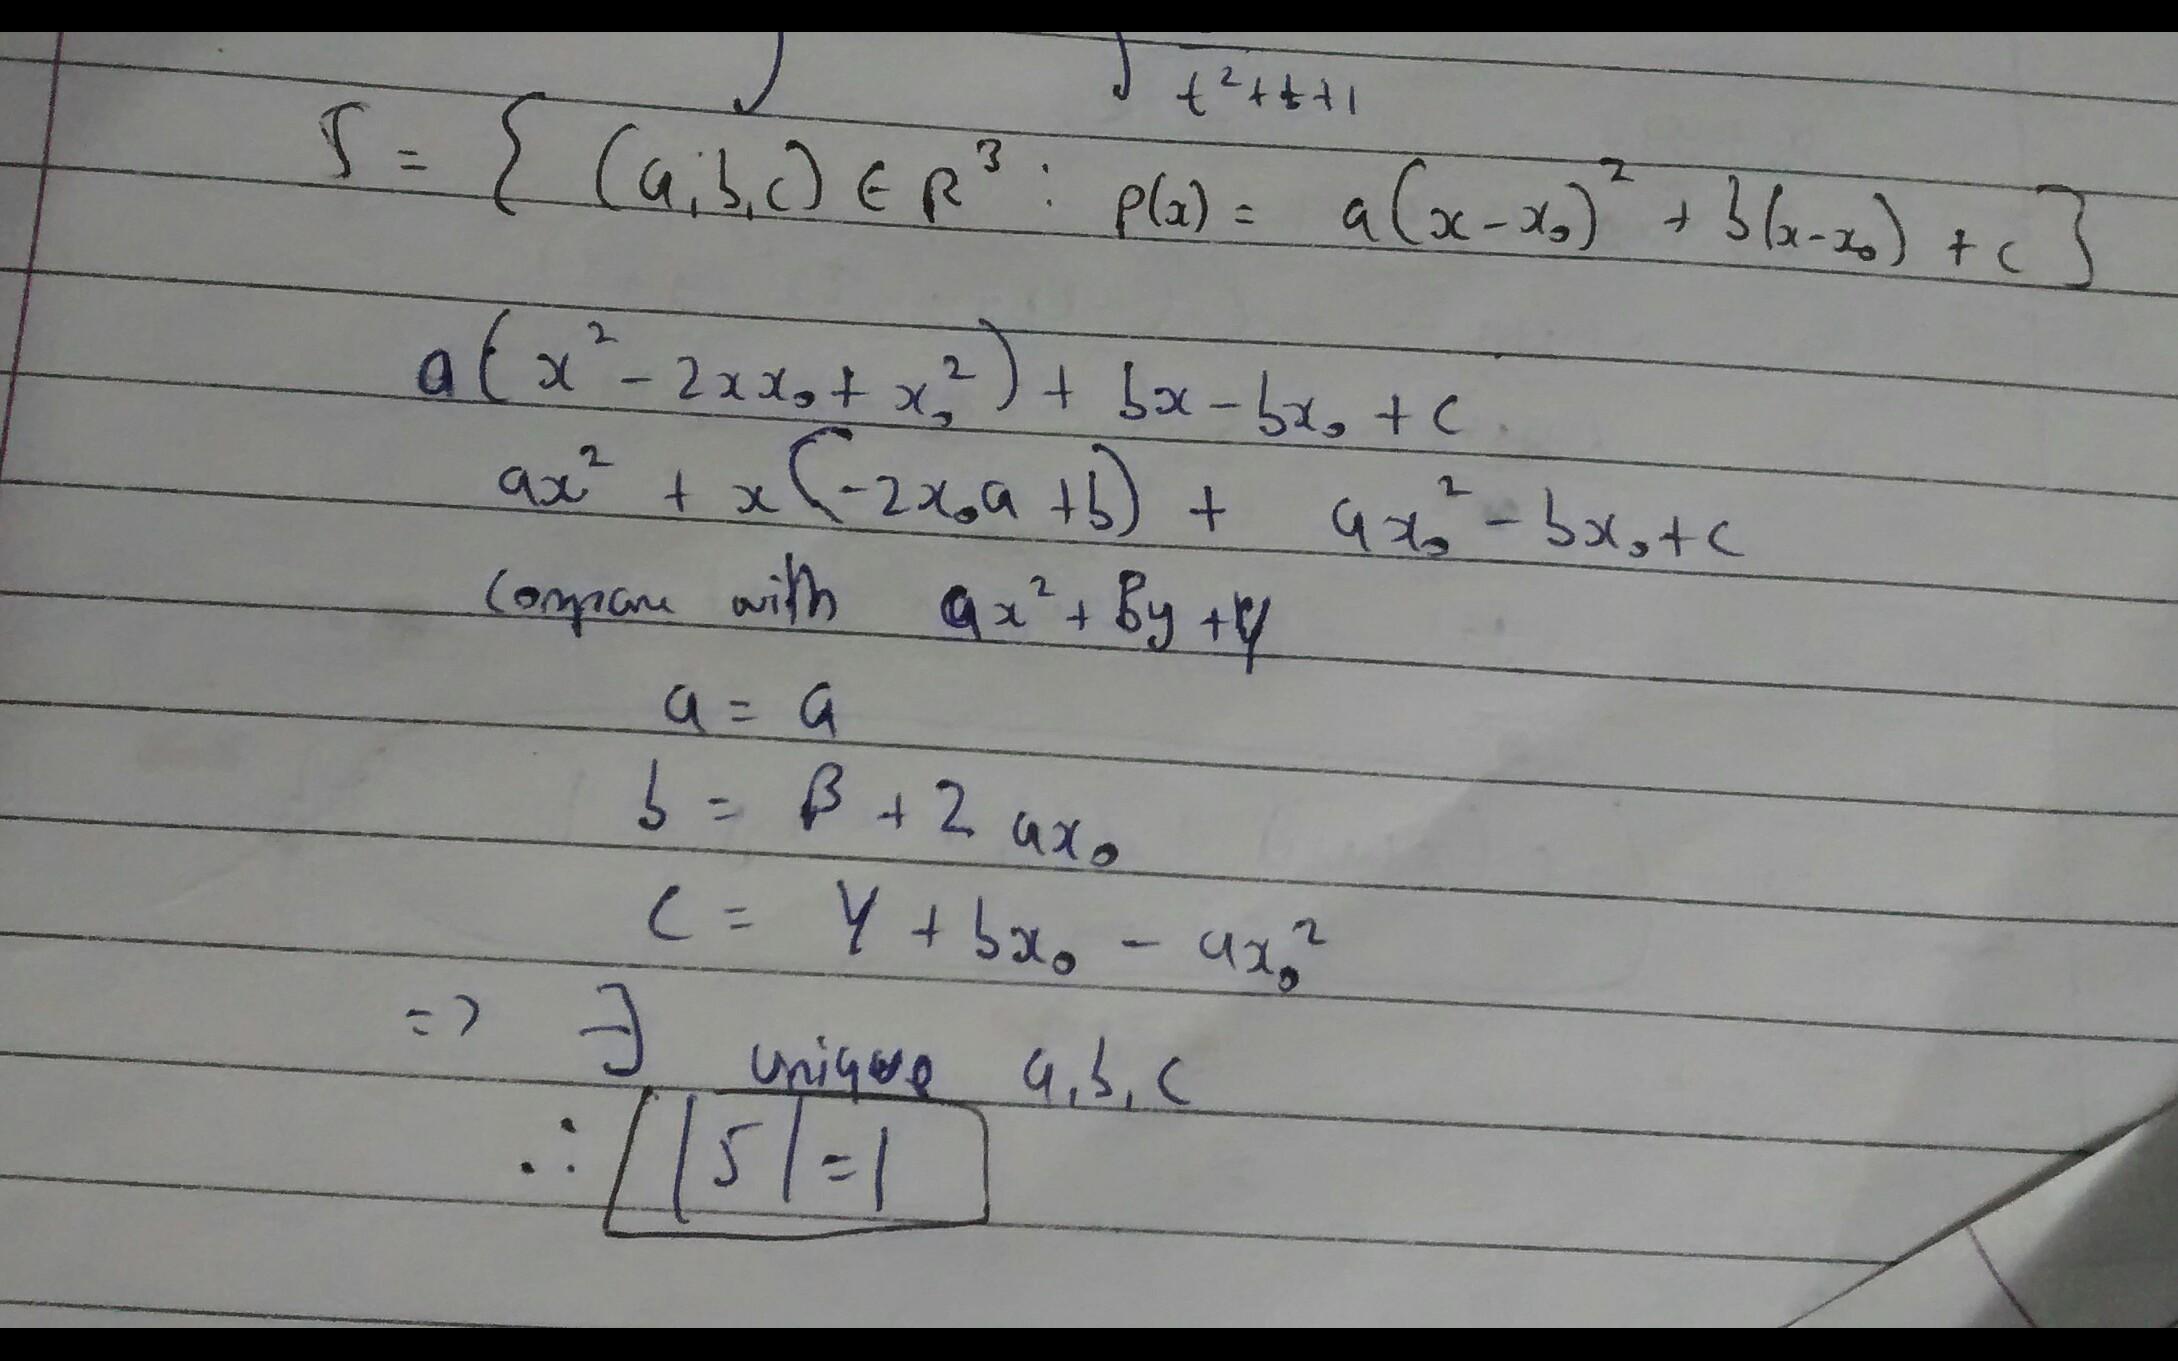 t² + t + 1
S = { (a, b, c) ∈ R³ : p(x) = a(x - x₀)² + b(x - x₀) + c }
a(x² - 2xx₀ + x₀²) + bx - bx₀ + c
ax² + x(-2x₀a + b) + ax₀² - bx₀ + c
compare with ax² + βy + γ
a = a
b = β + 2ax₀
c = γ + bx₀ - ax₀²
=> ∃ unique a, b, c
∴ |S| = 1